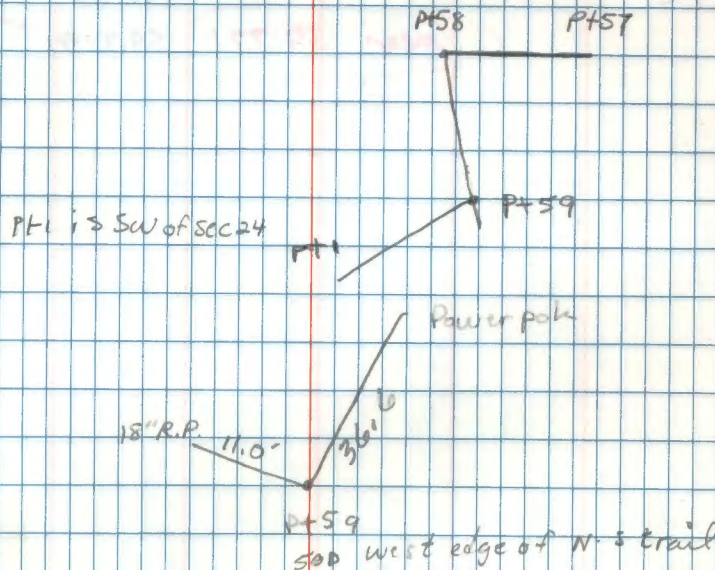 Pt58 Pt57
Pt59
Pt1 is SW of sec24
Pt1
Power pole
18" R.P. 11.0'
36' 6
Pt59
west edge of N-S trail